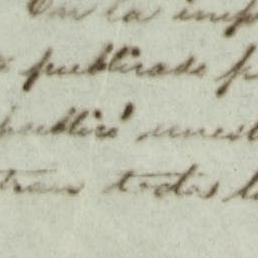 En la imp
publicado p
publicó nuest
tran todas l